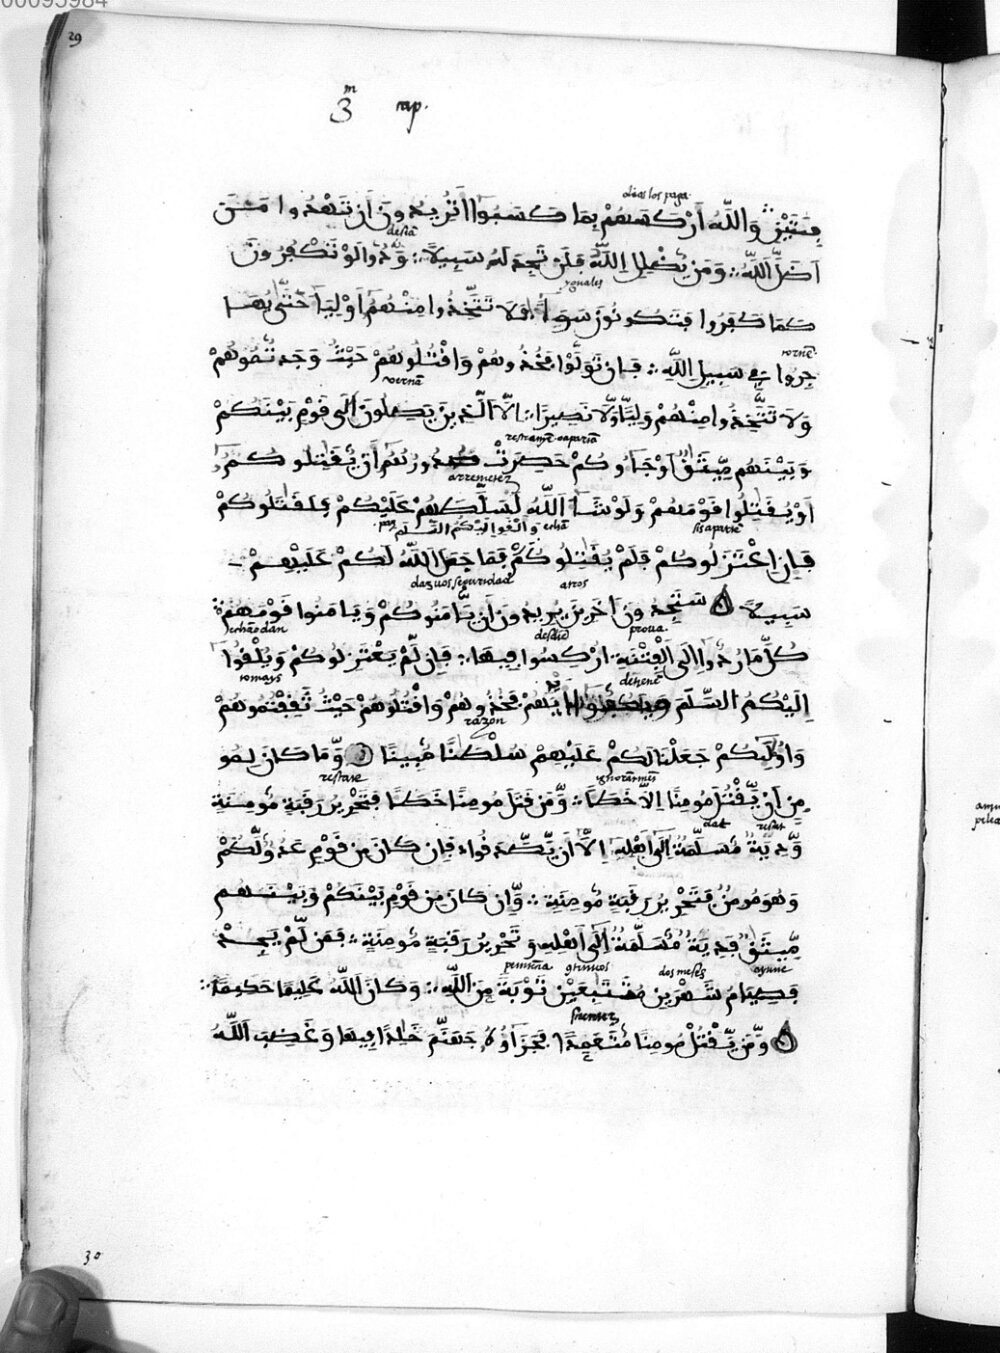 00095984
29
3 m cap.
dias los paga
فِئَتَيْنِ وَاللَّهُ أَرْكَسَهُمْ بِمَا كَسَبُوا أَتُرِيدُونَ أَن تَهْدُوا مَنْ
desiã
أَضَلَّ اللَّهُ وَمَن يُضْلِلِ اللَّهُ فَلَن تَجِدَ لَهُ سَبِيلًا وَدُّوا لَوْ تَكْفُرُونَ
yguales
كَمَا كَفَرُوا فَتَكُونُونَ سَوَاءً فَلَا تَتَّخِذُوا مِنْهُمْ أَوْلِيَاءَ حَتَّى يُهَا
tornẽ
جِرُوا فِي سَبِيلِ اللَّهِ فَإِن تَوَلَّوْا فَخُذُوهُمْ وَاقْتُلُوهُمْ حَيْثُ وَجَدتُّمُوهُمْ
vernã
وَلَا تَتَّخِذُوا مِنْهُمْ وَلِيًّا وَلَا نَصِيرًا إِلَّا الَّذِينَ يَصِلُونَ إِلَى قَوْمٍ بَيْنَكُمْ
وَبَيْنَهُم مِّيثَاقٌ أَوْ جَاءُوكُمْ حَصِرَتْ صُدُورُهُمْ أَن يُقَاتِلُوكُمْ
arremeter
أَوْ يُقَاتِلُوا قَوْمَهُمْ وَلَوْ شَاءَ اللَّهُ لَسَلَّطَهُمْ عَلَيْكُمْ فَلَقَاتَلُوكُمْ
paz وَأَلْقَوْا إِلَيْكُمُ السَّلَمَ echã
فَإِنِ اعْتَزَلُوكُمْ فَلَمْ يُقَاتِلُوكُمْ فَمَا جَعَلَ اللَّهُ لَكُمْ عَلَيْهِمْ
dazuos seguridad atros
سَبِيلًا سَتَجِدُونَ آخَرِينَ يُرِيدُونَ أَن يَأْمَنُوكُمْ وَيَأْمَنُوا قَوْمَهُمْ
echã o dan desdie prova
كُلَّمَا رُدُّوا إِلَى الْفِتْنَةِ أُرْكِسُوا فِيهَا فَإِن لَّمْ يَعْتَزِلُوكُمْ وَيُلْقُوا
tomays detenẽ
إِلَيْكُمُ السَّلَمَ وَيَكُفُّوا أَيْدِيَهُمْ فَخُذُوهُمْ وَاقْتُلُوهُمْ حَيْثُ ثَقِفْتُمُوهُمْ
razon
وَأُولَئِكُمْ جَعَلْنَا لَكُمْ عَلَيْهِمْ سُلْطَانًا مُّبِينًا وَمَا كَانَ لِمُو
مِنٍ أَن يَقْتُلَ مُومِنًا إِلَّا خَطَئًا وَمَن قَتَلَ مُومِنًا خَطَئًا فَتَحْرِيرُ رَقَبَةٍ مُّومِنَةٍ
dat
وَدِيَةٌ مُّسَلَّمَةٌ إِلَى أَهْلِهِ إِلَّا أَن يَصَّدَّقُوا فَإِن كَانَ مِن قَوْمٍ عَدُوٍّ لَّكُمْ
وَهُوَ مُومِنٌ فَتَحْرِيرُ رَقَبَةٍ مُّومِنَةٍ وَإِن كَانَ مِن قَوْمٍ بَيْنَكُمْ وَبَيْنَهُم
مِّيثَاقٌ فَدِيَةٌ مُّسَلَّمَةٌ إِلَى أَهْلِهِ وَتَحْرِيرُ رَقَبَةٍ مُّومِنَةٍ فَمَن لَّمْ يَجِدْ
dos meses ayune
فَصِيَامُ شَهْرَيْنِ مُتَتَابِعَيْنِ تَوْبَةً مِّنَ اللَّهِ وَكَانَ اللَّهُ عَلِيمًا حَكِيمًا
وَمَن يَقْتُلْ مُومِنًا مُّتَعَمِّدًا فَجَزَاؤُهُ جَهَنَّمُ خَالِدًا فِيهَا وَغَضِبَ اللَّهُ
30